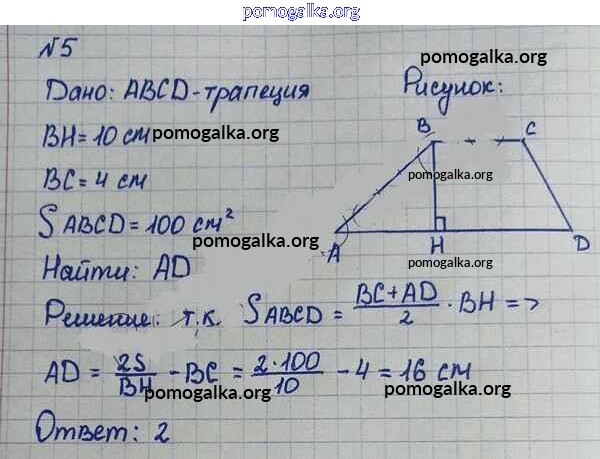 pomogalka.org
№5
pomogalka.org
Дано: ABCD-трапеция
Рисунок:
BH = 10 см pomogalka.org
B C
pomogalka.org
BC = 4 см
S ABCD = 100 см²
pomogalka.org
A H D
Найти: AD
pomogalka.org
Решение: т.к. S ABCD = BC+AD/2 · BH =>
pomogalka.org
AD = 2S/BH - BC = 2·100/10 - 4 = 16 см
pomogalka.org pomogalka.org
Ответ: 2